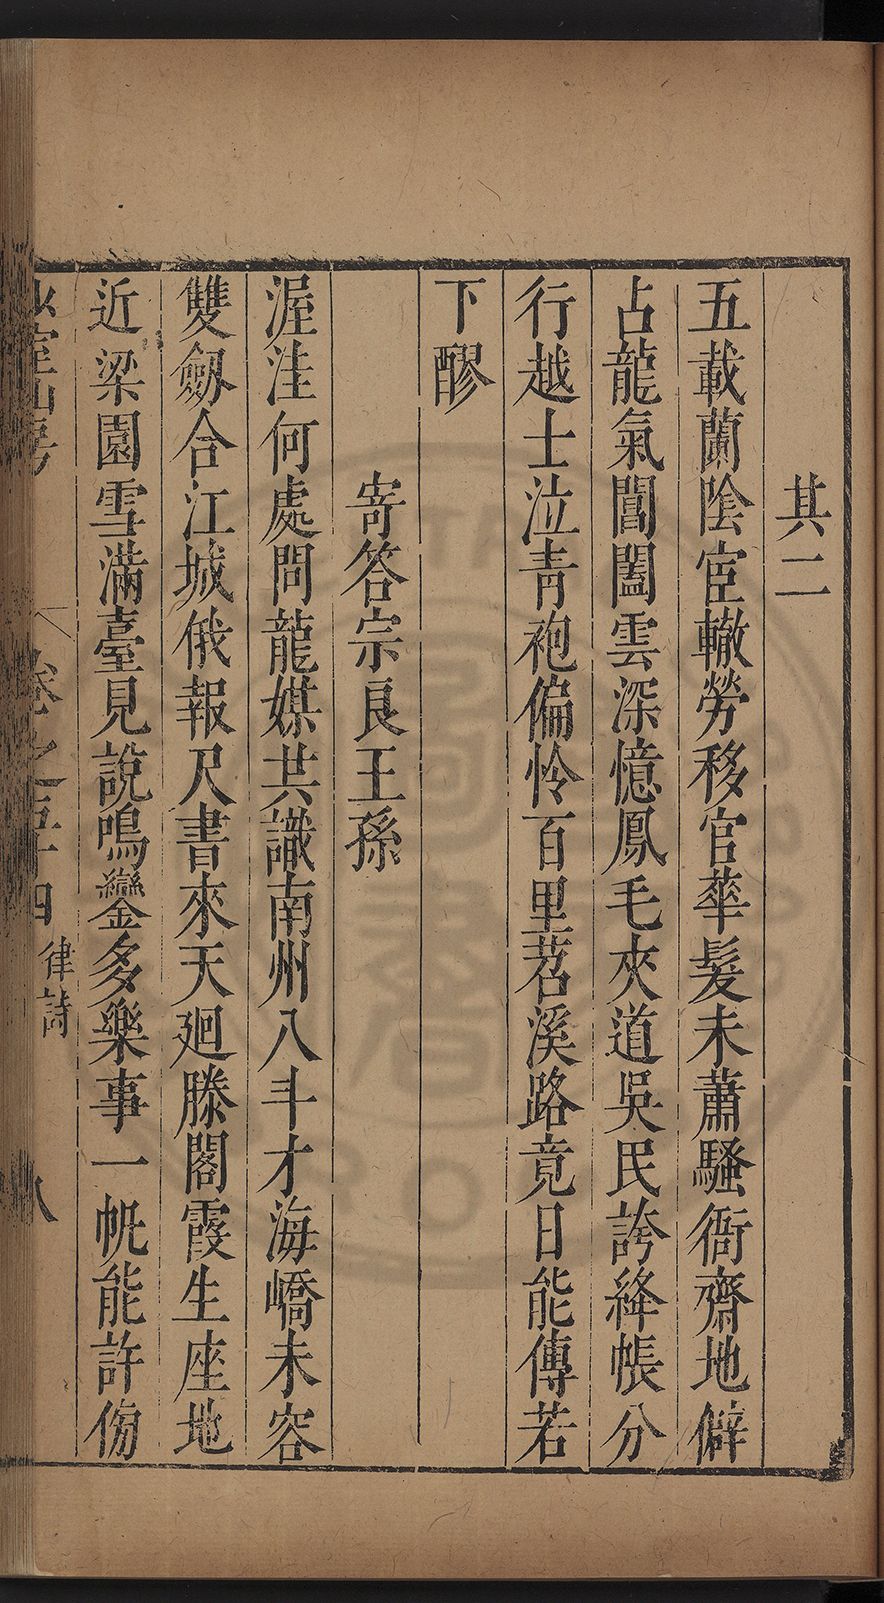 其二
五載蘭陰宦轍勞移官華髮未蕭騷衙齋地僻
占龍氣閶闔雲深憶鳳毛夾道吳民誇絳帳分
行越士泣青袍偏怜百里苕溪路竟日能傳若
下醪
寄答宗良王孫
渥洼何處問龍媒共識南州八斗才海嶠未容
雙劒合江城俄報尺書來天廻滕閣霞生座地
近梁園雪滿臺見說鳴鑾多樂事一帆能許傍
少室山房
卷之五十四
律詩
八